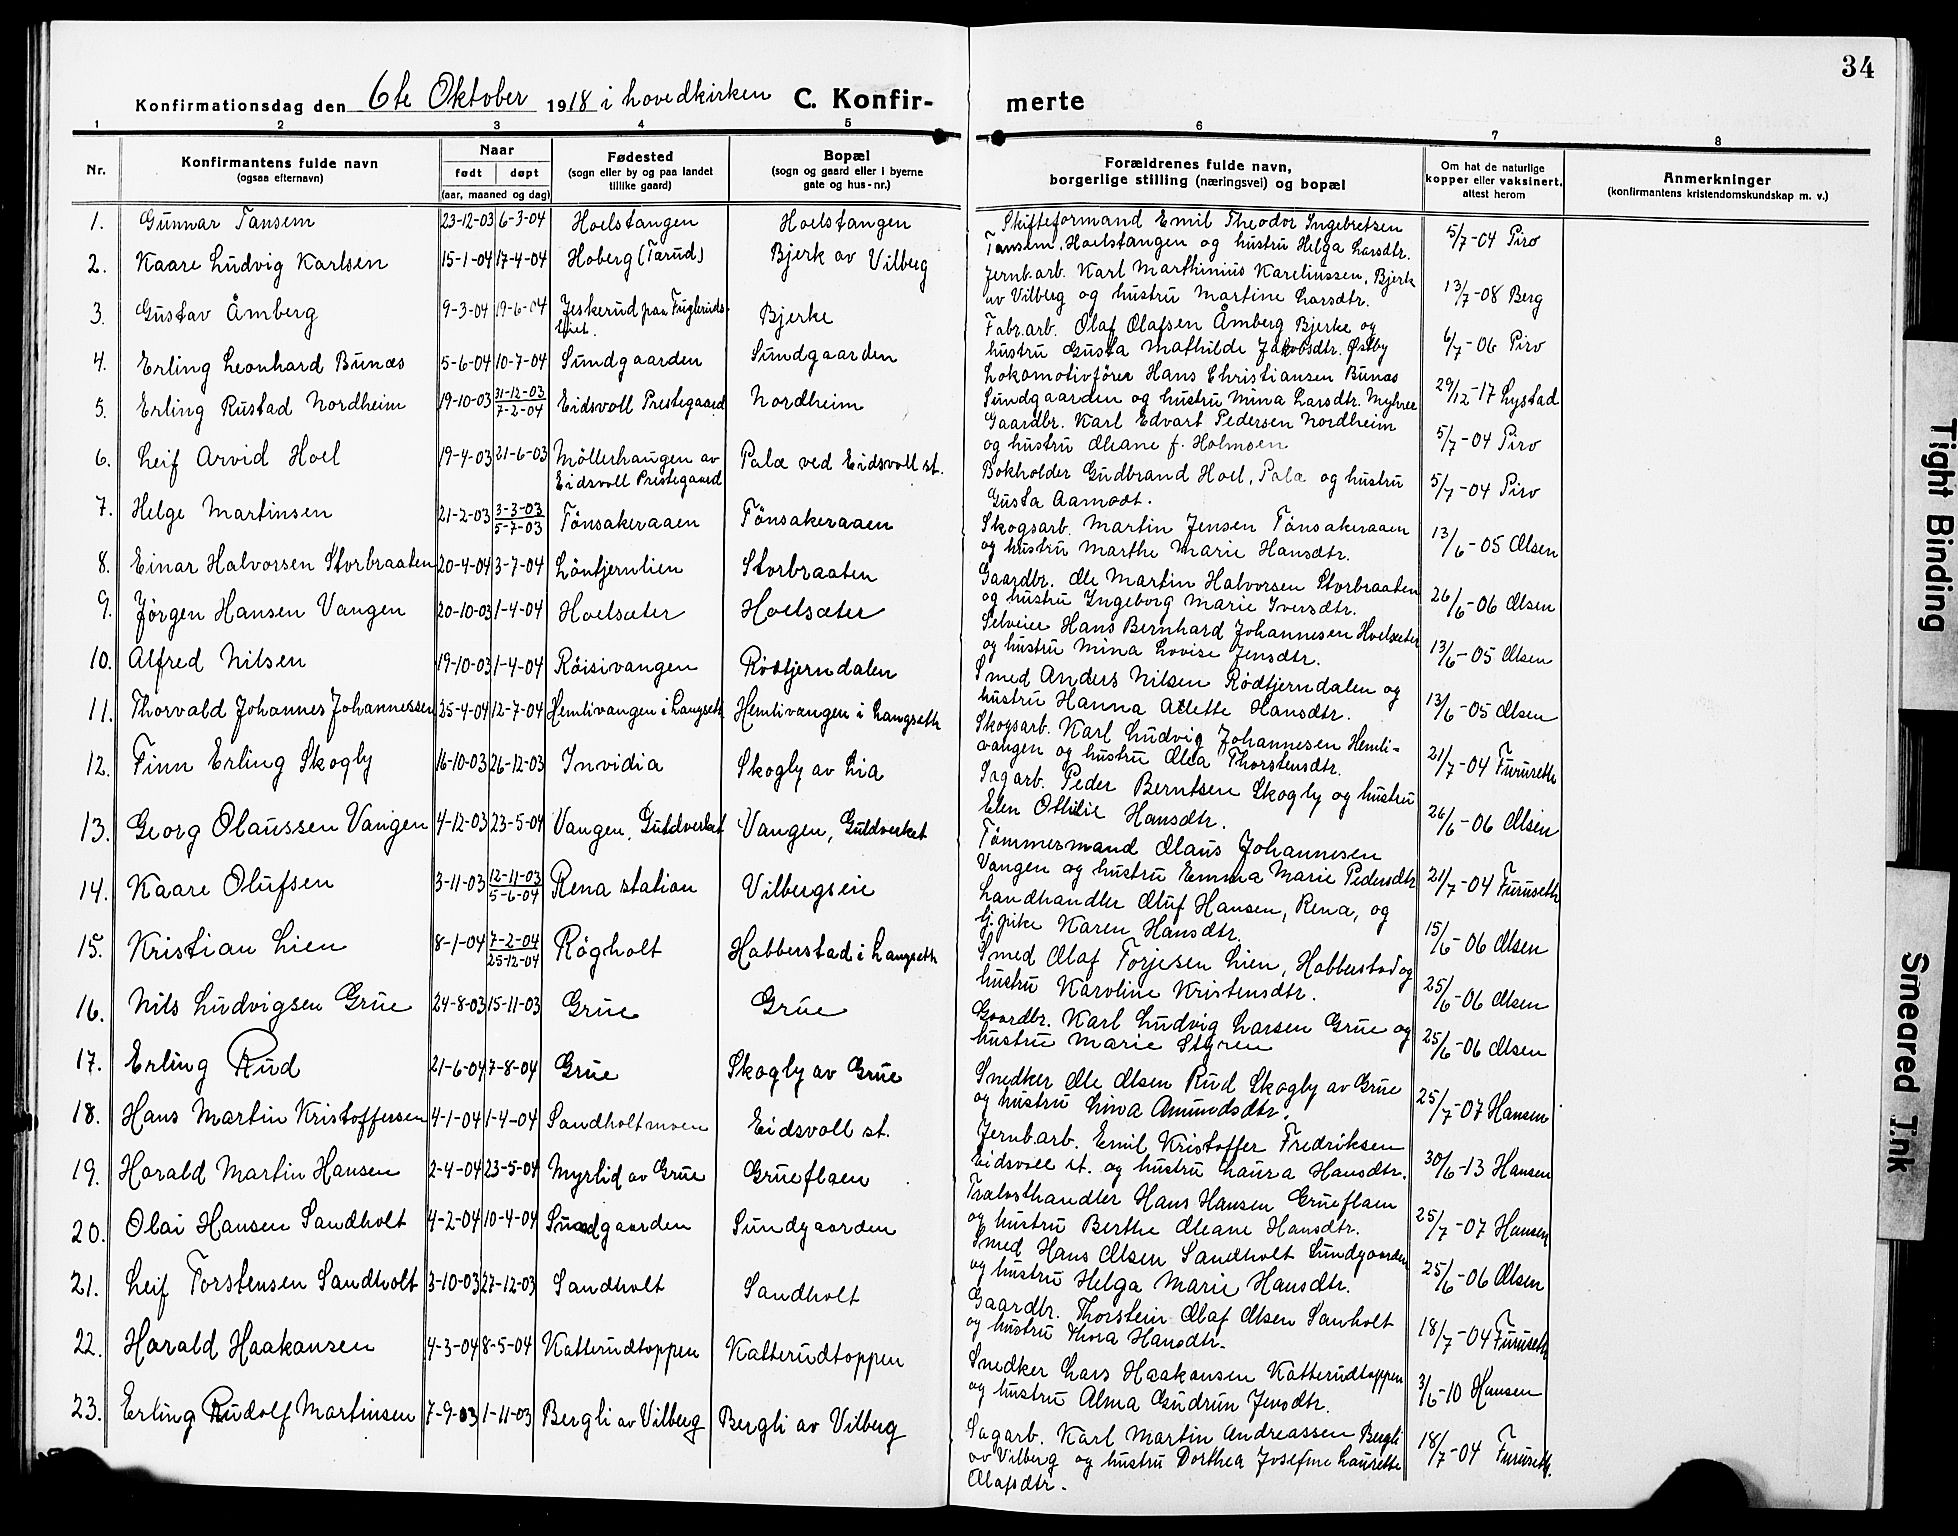 34
Konfirmationsdag den 6te Oktober 1918 i hovedkirken C. Konfir- merte
1 2 3 4 5 6 7 8
Nr. Konfirmantens fulde navn (ogsaa efternavn) Naar født døpt (aar, maaned og dag) Fødested (sogn eller by og paa landet tillike gaard) Bopæl (sogn og gaard eller i byerne gate og hus-nr.) Forældrenes fulde navn, borgerlige stilling (næringsvei) og bopæl Om hat de naturlige kopper eller vaksinert, attest herom Anmerkninger (konfirmantens kristendomskundskap m. v.)
1. Gunnar Tansem 23-12-03 6-3-04 Hoelstangen Hoelstangen Skifteformand Emil Theodor Ingebretsen Tansem, Hoelstangen og hustru Helga Larsdtr. 5/7-04 Piro
2. Kaare Ludvig Karlsen 15-1-04 17-4-04 Hoberg (Tarud) Bjerk av Vilberg Jernb.arb. Karl Marthinius Kareliussen, Bjerk av Vilberg og hustru Martine Larsdtr. 13/7-08 Berg
3. Gustav Åmberg 9-3-04 19-6-04 Jeskerud paa Fuglerudsbiet. Bjerke Fabr.arb. Olaf Olafsen Åmberg Bjerke og hustru Gusta Mathilde Jakobsdtr. Østby 6/7-06 Piro
4. Erling Leonhard Bunæs 5-6-04 10-7-04 Sundgaarden Sundgaarden Lokomotivfører Hans Christiansen Bunæs Sundgaarden og hustru Mina Larsdtr. Myhrer 29/12-17 Lystad
5. Erling Rustad Nordheim 19-10-03 31-12-03 7-2-04 Eidsvoll Prestegaard Nordheim Gaardbr. Karl Edvart Pedersen Nordheim og hustru Oleane f. Holmsen 5/7-04 Piro
6. Leif Arvid Hoel 19-4-03 21-6-03 Møllerhaugen av Eidsvoll Prestegaard Palæ ved Eidsvoll st. Bokholder Gudbrand Hoel, Palæ og hustru Gusta Aamodt. 5/7-04 Piro
7. Helge Martinsen 21-2-03 3-3-03 5-7-03 Tønsakeraaen Tønsakeraaen Skogsarb. Martin Jensen Tønsakeraaen og hustru Marthe Marie Hansdtr. 13/6-05 Olsen
8. Einar Halvorsen Storbraaten 20-4-04 3-7-04 Løntjernlien Storbraaten Gaardbr. Ole Martin Halvorsen Storbraaten og hustru Ingeborg Marie Iversdtr. 26/6-06 Olsen
9. Jørgen Hansen Vangen 20-10-03 1-4-04 Hoelsæter Hoelsæter Selveier Hans Bernhard Johannesen Hoelsæter og hustru Mina Lovise Jensdtr. 13/6-05 Olsen
10. Alfred Nilsen 19-10-03 1-4-04 Røisivangen Rødtjerndalen Smed Anders Nilsen Rødtjerndalen og hustru Hanna Alette Hansdtr. 13/6-05 Olsen
11. Thorvald Johannes Johannessen 25-4-04 12-7-04 Hemlivangen i Langseth Hemlivangen i Langseth Skogsarb. Karl Ludvig Johannesen Hemlivangen og hustru Olea Thorstensdtr. 21/7-04 Furuseth
12. Finn Erling Skogly 16-10-03 26-12-03 Invidia Skogly av Lia Sagarb. Peder Berntsen Skogly og hustru Elen Othilie Hansdtr. 26/6-06 Olsen
13. Georg Olaussen Vangen 4-12-03 23-5-04 Vangen, Guldverket Vangen, Guldverket Tømmermand Olaus Johannesen Vangen og hustru Emma Marie Pedersdtr 21/7-04 Furuseth
14. Kaare Olufsen 3-11-03 12-11-03 5-6-04 Rena station Vilbergseie Landhandler Oluf Hansen, Rena, og tj.pike Karen Hansdtr. 15/6-06 Olsen
15. Kristian Lien 8-1-04 7-2-04 25-12-04 Røgholt Habberstad i Langseth Smed Olaf Torjesen Lien, Habberstad og hustru Karoline Kristensdtr. 25/6-06 Olsen
16. Nils Ludvigsen Grue 24-8-03 15-11-03 Grue Grue Gaardbr. Karl Ludvig Larsen Grue og hustru Marie Styren 25/6-06 Olsen
17. Erling Rud 21-6-04 7-8-04 Grue Skogly av Grue Snedker Ole Olsen Rud Skogly av Grue og hustru Lina Amundsdtr. 25/7-07 Hansen
18. Hans Martin Kristoffersen 4-1-04 1-4-04 Sandholtmoen Eidsvoll st. Jernb.arb. Emil Kristoffer Fredriksen Eidsvoll st. og hustru Laura Hansdtr. 30/6-13 Hansen
19. Harald Martin Hansen 2-4-04 23-5-04 Myrlid av Grue Grueflaen Trælasthandler Hans Hansen Grueflaen og hustru Berthe Oleane Hansdtr. 25/7-07 Hansen
20. Olai Hansen Sandholt 4-2-04 10-4-04 Sundgaarden Sundgaarden Smed Hans Olsen Sandholt Sundgaarden og hustru Helga Marie Hansdtr. 25/6-06 Olsen
21. Leif Torstensen Sandholt 3-10-03 27-12-03 Sandholt Sandholt Gaardbr. Thorstein Olaf Olsen Sanholt og hustru Thora Hansdtr. 18/7-04 Furuseth
22. Harald Haakansen 4-3-04 8-5-04 Katterudtoppen Katterudtoppen Snedker Lars Haakansen Katterudtoppen og hustru Alma Gudrun Jensdtr. 3/6-10 Hansen
23. Erling Rudolf Martinsen 7-9-03 1-11-03 Bergli av Vilberg Bergli av Vilberg Sagarb. Karl Martin Andreassen Bergli av Vilberg og hustru Dorthea Josefine Laurette Olafsdtr. 18/7-04 Furuseth.
Tight Binding
Smeared Ink